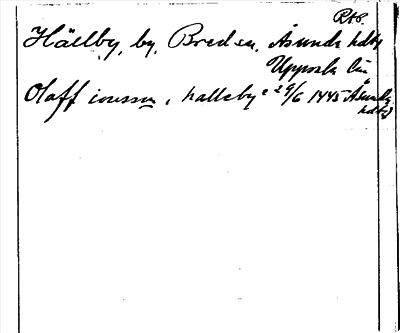 RAP.
Hällby, by, Breds sn, Åsunda hdbg
Uppsala län
Olaff ionsson, halleby c 29/6 1445 Åsunda
hdbg